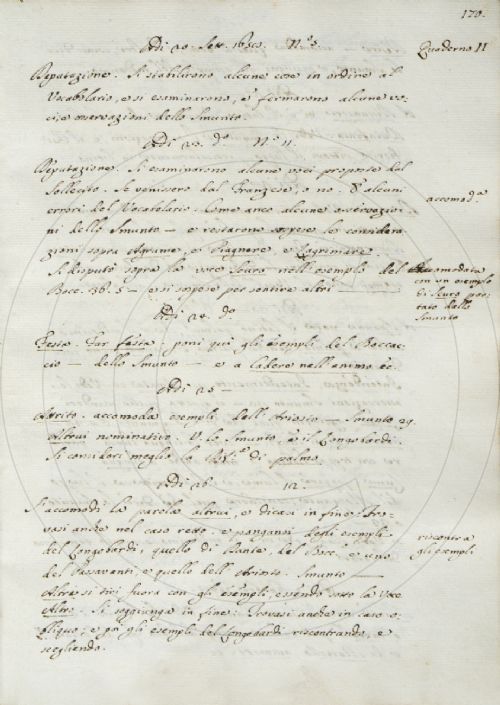 170.
Adi 20. Sett. 1650. N.° 5.
Quaderno 11
Deputazione. Si stabilirono alcune cose in ordine al
Vocabolario, e si esaminarono, e fermarono alcune vo-
ci e osservazioni dello Smunto.
Adi 23. d.° N.° 11.
Deputazione. Si esaminarono alcune voci proposte dal
Sollecito. Se venissero dal Franzese, o no. E alcuni
errori del Vocabolario. Come anco alcune osservazio-
accomod.e
ni dello Smunto — e restarono sospese le considera-
zioni sopra Agrume, e Piagnere, e Lagrimare.
Si disputò sopra la voce scuro nell'esempio del
Bocc. 36. 5 — e si sospese per sentire altri —
Accomodata
con un esempio
di scuro por-
tato dallo
Smunto
Adi 24. d.°
Testa. Far testa. poni qui gli esempli del Boccac-
cio — dello Smunto — e a cadere nell'animo &c.
Adi 25 —
accomoda esempli dell'Ariosto — Smunto 29.
Altrui nominativo. V. lo Smunto, e il Longobardi.
Si consideri meglio la di palmo.
Adi 26 12.
Si accomodi la parola altrui, e dicasi in fine: Tro-
vasi anche nel caso retto. e pongansi degli esempli
del Longobardi, quello di Dante, del Bocc. e uno
del Passavanti, e quello dell'Ariosto. Smunto —
riscontra
gli esempli
Altre si tiri fuora con gli esempli, essendo sotto la voce
Altro. Si soggiunga in fine: Trovasi anche in caso o-
bliquo; e poi gli esempli del Longobardi riscontrando, e
scegliendo.